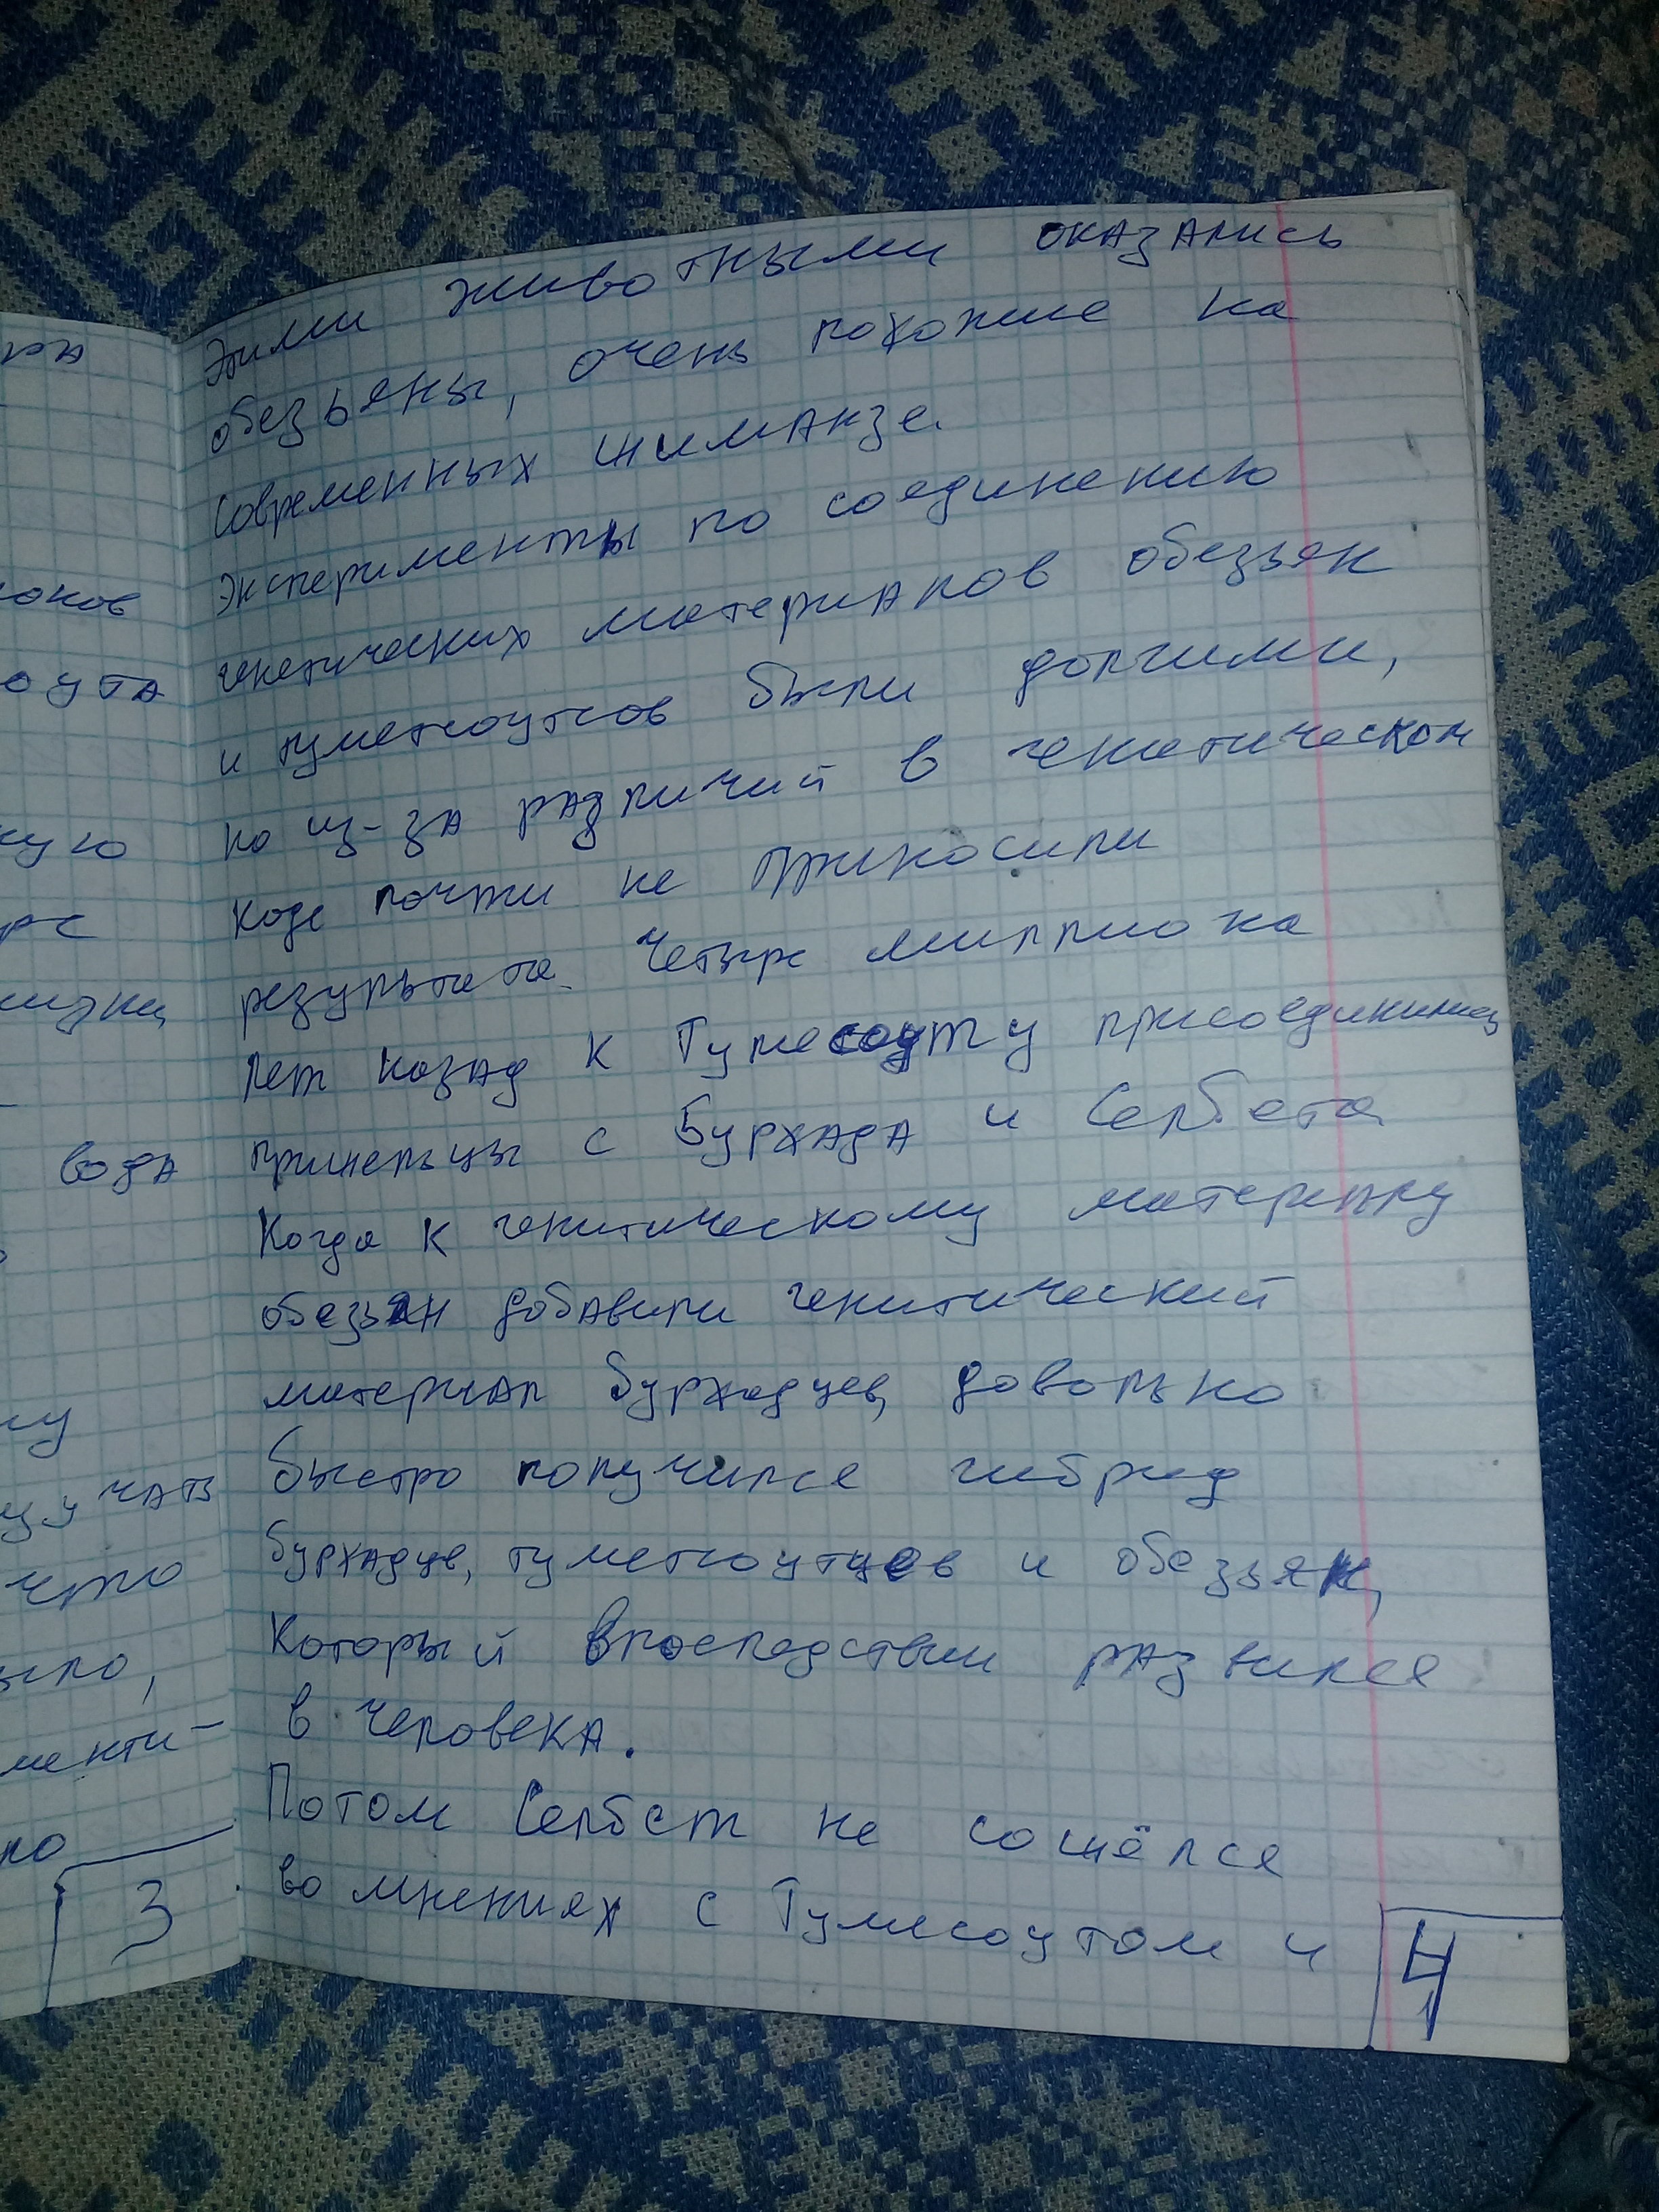 ока
оков
оута
кую
рс
изни
вода
му
изучать
что
ыло,
менти-
ло
3
Этими животными оказались
обезьяны, очень похожие на
современных шиманзе.
Эксперименты по соединению
генетических материалов обезьян
и были долгими,
но из-за различий в генетическом
коде почти не приносили
результата. Четыре миллиона
лет назад к Тумесоуту присоединились
пришельцы с Бурхада и Селбета
Когда к генитическому материалу
обезьян добавили генитический
материал бурхадцев, довольно
быстро получился гибрид
бурхадцв, и обезьян,
который впоследствии развился
в человека.
Потом Селбет не сошёлся
во мнениях с Тумесоутом и
4